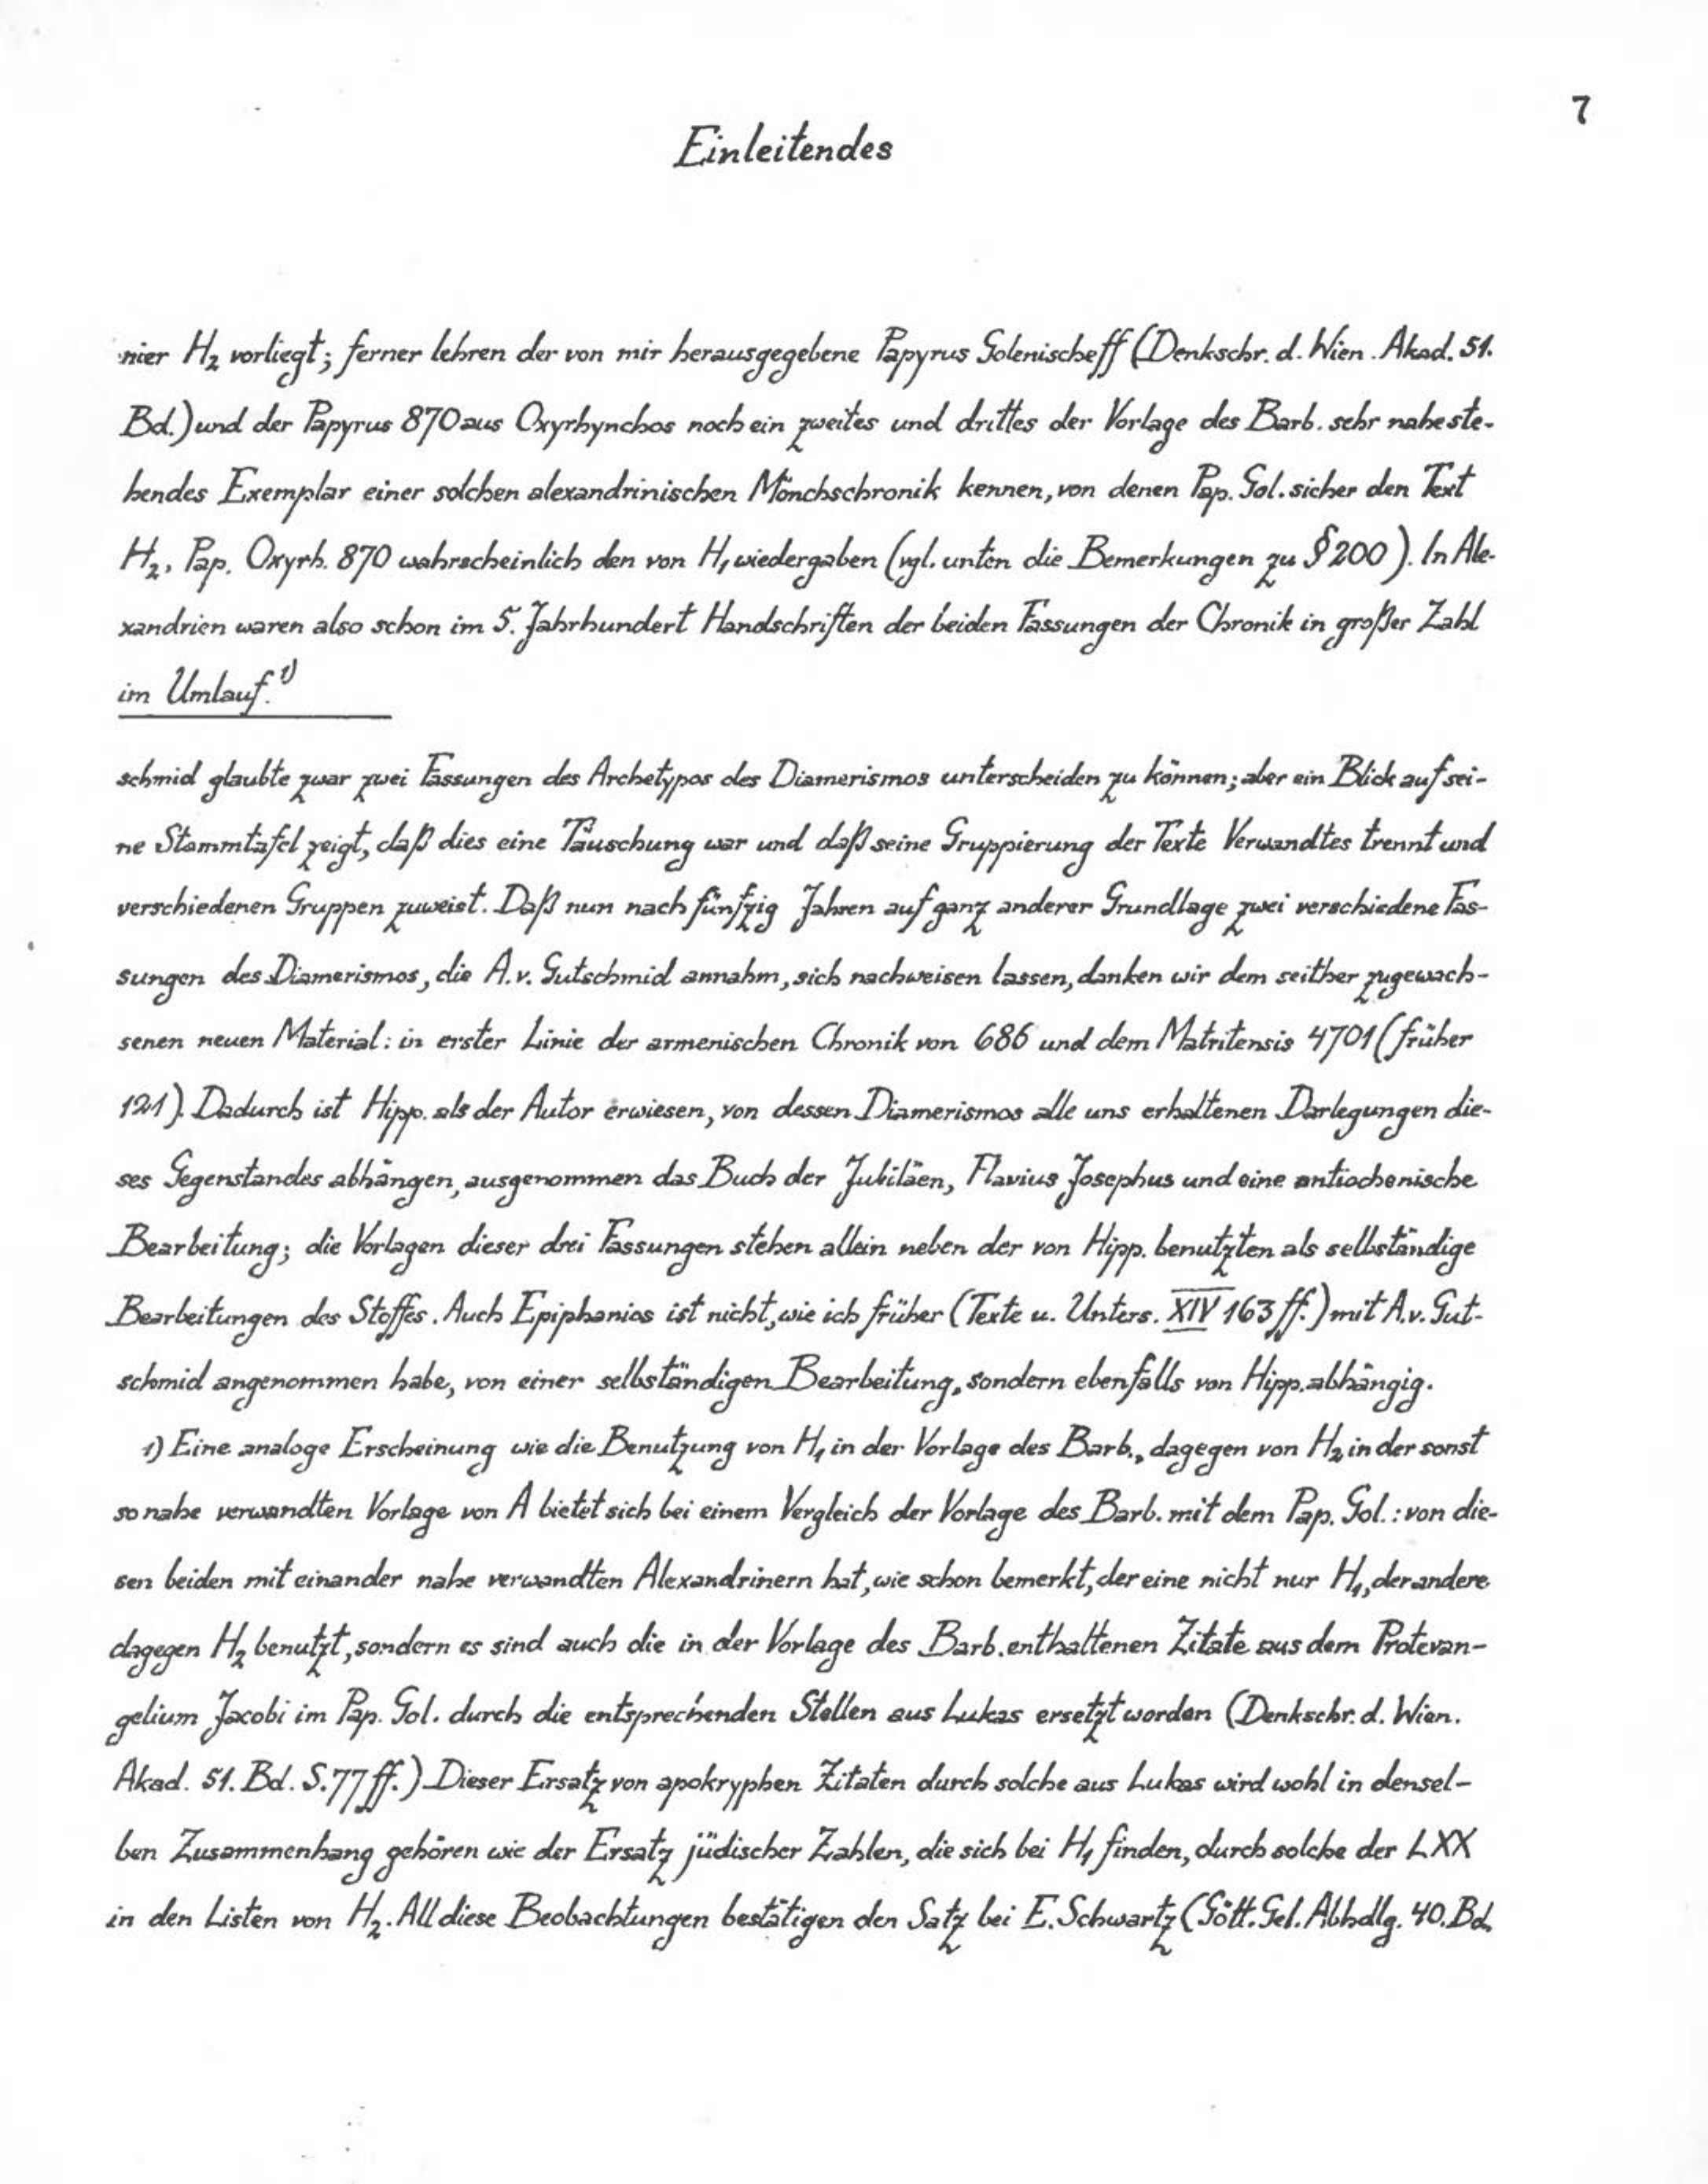 7
Einleitendes
nier H₂ vorliegt; ferner lehren der von mir herausgegebene Papyrus Golenischeff (Denkschr. d. Wien. Akad. 51.
Bd.) und der Papyrus 870 aus Oxyrhynchos noch ein zweites und drittes der Vorlage des Barb. sehr naheste-
hendes Exemplar einer solchen alexandrinischen Mönchschronik kennen, von denen Pap. Gol. sicher den Text
H₂, Pap. Oxyrh. 870 wahrscheinlich den von H₁ wiedergaben (vgl. unten die Bemerkungen zu § 200). In Ale-
xandrien waren also schon im 5. Jahrhundert Handschriften der beiden Fassungen der Chronik in großer Zahl
im Umlauf.¹⁾
schmid glaubte zwar zwei Fassungen des Archetypos des Diamerismos unterscheiden zu können; aber ein Blick auf sei-
ne Stammtafel zeigt, daß dies eine Täuschung war und daß seine Gruppierung der Texte Verwandtes trennt und
verschiedenen Gruppen zuweist. Daß nun nach fünfzig Jahren auf ganz anderer Grundlage zwei verschiedene Fas-
sungen des Diamerismos, die A. v. Gutschmid annahm, sich nachweisen lassen, danken wir dem seither zugewach-
senen neuen Material: in erster Linie der armenischen Chronik von 686 und dem Matritensis 4701 (früher
121). Dadurch ist Hipp. als der Autor erwiesen, von dessen Diamerismos alle uns erhaltenen Darlegungen die-
ses Gegenstandes abhängen, ausgenommen das Buch der Jubiläen, Flavius Josephus und eine antiochenische
Bearbeitung; die Vorlagen dieser drei Fassungen stehen allein neben der von Hipp. benutzten als selbständige
Bearbeitungen des Stoffes. Auch Epiphanios ist nicht, wie ich früher (Texte u. Unters. XIV 163 ff.) mit A. v. Gut-
schmid angenommen habe, von einer selbständigen Bearbeitung, sondern ebenfalls von Hipp. abhängig.
1) Eine analoge Erscheinung wie die Benutzung von H₁ in der Vorlage des Barb., dagegen von H₂ in der sonst
so nahe verwandten Vorlage von A bietet sich bei einem Vergleich der Vorlage des Barb. mit dem Pap. Gol.: von die-
sen beiden mit einander nahe verwandten Alexandrinern hat, wie schon bemerkt, der eine nicht nur H₁, der andere
dagegen H₂ benutzt, sondern es sind auch die in der Vorlage des Barb. enthaltenen Zitate aus dem Protevan-
gelium Jacobi im Pap. Gol. durch die entsprechenden Stellen aus Lukas ersetzt worden (Denkschr. d. Wien.
Akad. 51. Bd. S. 77 ff.) Dieser Ersatz von apokryphen Zitaten durch solche aus Lukas wird wohl in densel-
ben Zusammenhang gehören wie der Ersatz jüdischer Zahlen, die sich bei H₁ finden, durch solche der LXX
in den Listen von H₂. All diese Beobachtungen bestätigen den Satz bei E. Schwartz (Gött. Gel. Abhdlg. 40. Bd.